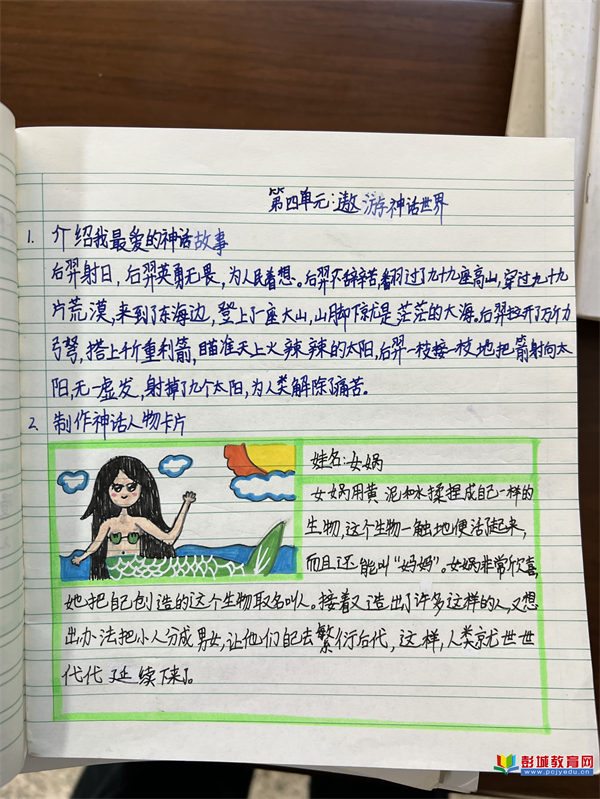 第四单元:遨游神话世界
1. 介绍我最爱的神话故事
后羿射日,后羿英勇无畏,为人民着想。后羿不辞辛苦,翻过了九十九座高山,穿过九十九
片荒漠,来到了东海边,登上了一座大山,山脚下就是茫茫的大海。后羿拉开了万斤力
弓弩,搭上千斤重利箭,瞄准天上火辣辣的太阳,后羿一枝接一枝地把箭射向太
阳,无一虚发,射掉了九个太阳,为人类解除了痛苦。
2. 制作神话人物卡片
姓名:女娲
女娲用黄泥和水揉捏成自己一样的
生物,这个生物一触地便活了起来,
而且还能叫“妈妈”。女娲非常欣喜,
她把自己创造的这个生物取名叫人。接着又造出了许多这样的人,又想
出办法把小人分成男女,让他们自己去繁衍后代,这样,人类就世世
代代延续下来了。
彭城教育网
www.pcjyedu.cn